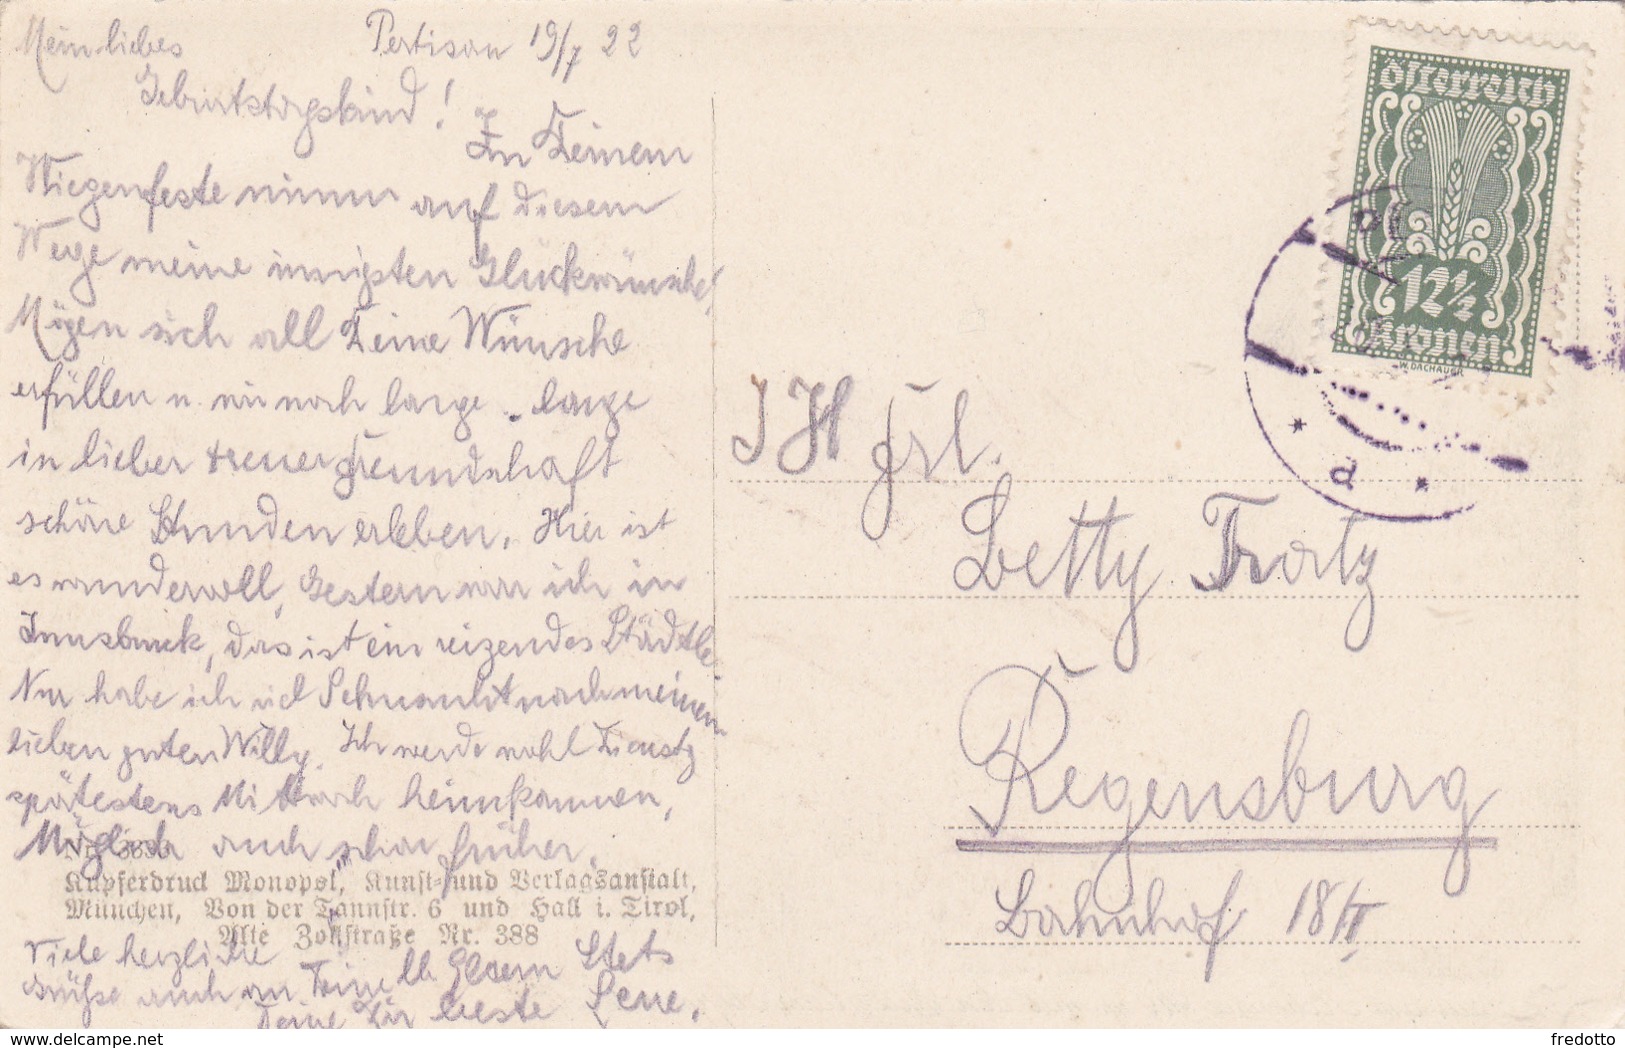 Mein liebes Pertisau 19/7 22
Geburtstagskind!
Zu Deinem
Wiegenfeste nimm auf diesem
Wege meine innigsten Glückwünsche!
Mögen sich all Deine Wünsche
erfüllen u. wir noch lange - lange
in lieber treuer Freundschaft
schöne Stunden erleben. Hier ist
es wundervoll, Gestern war ich in
Innsbruck, das ist ein reizendes Städtle
Nur habe ich viel Sehnsucht nach meinem
lieben guten Willy. Ich werde wohl Dienstg
spätestens Mittwoch heimkommen,
Möglich auch schon früher.
Viele herzliche
Grüße auch an Deine lb. Eltern Stets
Deine Dir beste Lene.
Kupferdruck Monopol, Kunst- und Verlagsanstalt,
München, Von der Tannstr. 6 und Hall i. Tirol,
Alte Zollstraße Nr. 388
Österreich
12½
Kronen
W. DACHAUER
a
I H Frl.
Betty Tratz
Regensburg
Bahnhof 18/II
www.delcampe.net
fredotto